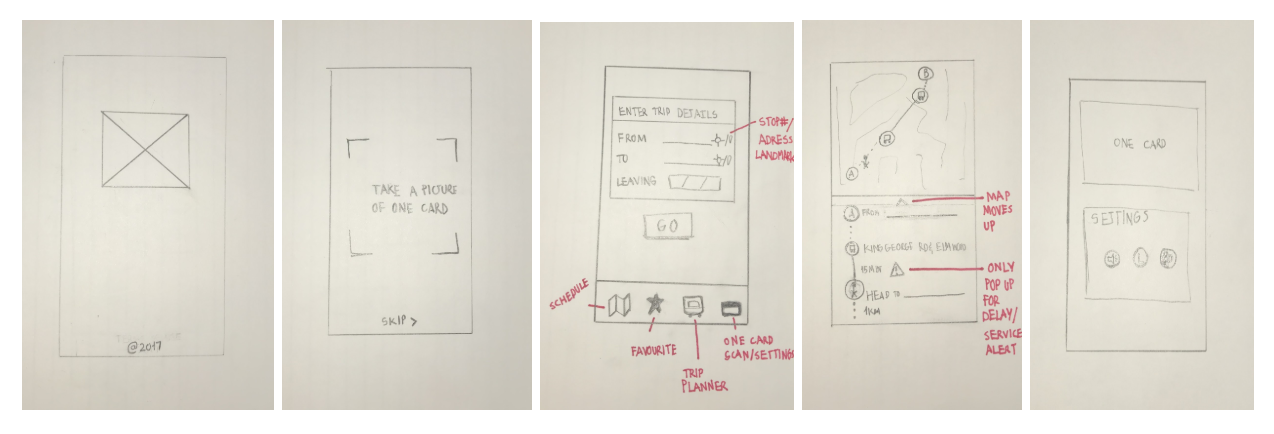 @2017
TAKE A PICTURE
OF ONE CARD
SKIP >
ENTER TRIP DETAILS
FROM
TO
LEAVING
GO
STOP#/
ADRESS
LANDMARK
SCHEDULE
FAVOURITE
TRIP
PLANNER
ONE CARD
SCAN/SETTINGS
B
A
MAP
MOVES
UP
A
FROM
KING GEORGE RD/ELMWOOD
15 MIN
ONLY
POP UP
FOR
DELAY/
SERVICE
ALERT
HEAD TO
1KM
ONE CARD
SETTINGS